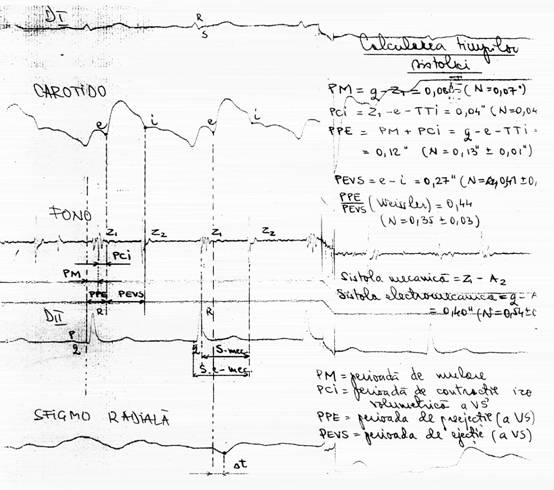 DII
R
S
Calcularea timpilor
sistolici
CAROTIDO
PM = g - Z₁ = 0,08" (N=0,07")
PCi = Z₁-e-TTi = 0,04" (N=0,04
PPE = PM + PCi = g-e-TTi
= 0,12" (N=0,13" ± 0,01")
e i e i
PEVS = e-i = 0,27"
PPE/PEVS (Weissler) = 0,44
(N=0,35 ± 0,03)
FONO
Z₁ Z₂ Z₁ Z₂
PCi
PM
Sistola mecanică = Z₁ - A₂
PPE PEVS
Sistola electromecanică = g -
= 0,40"
DII
R R
P
q q
S. mec
S. e-mec
PM = perioadă de mulare
PCi = perioadă de contracție izo
volumetrică a VS
PPE = perioada de preejecție (a VS)
PEVS = perioada de ejecție (a VS)
SFIGMO RADIALĂ
Δt